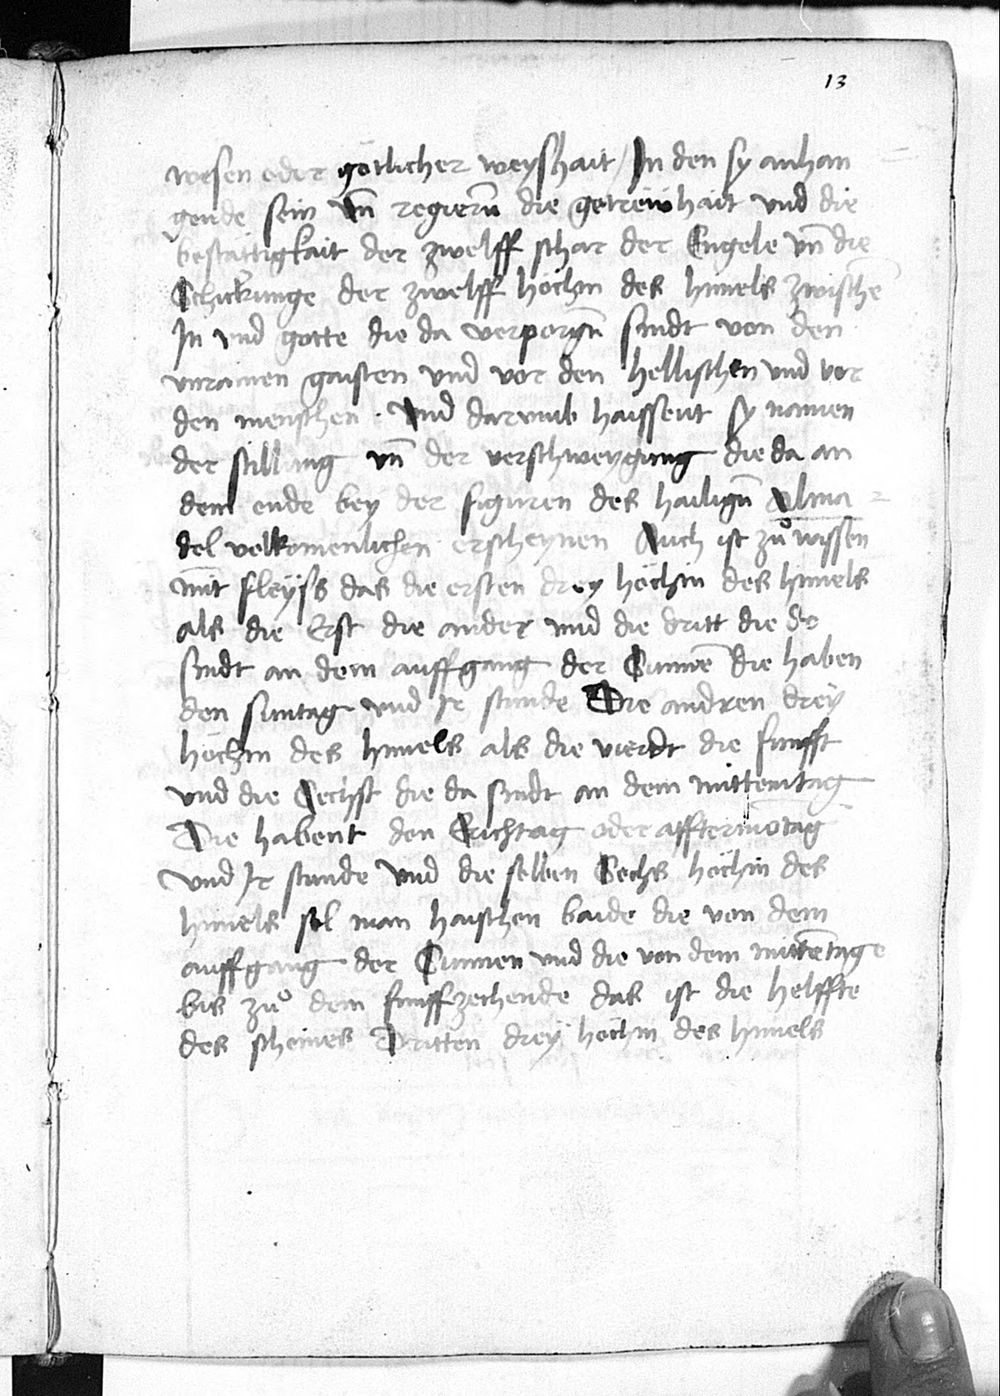 13
wesen oder götlicher weyshait / In den sy anhan
gende sein vn̄ regierū die getrëwhait vnd die
bestättigkait der zwelff schar der Engele vn̄ die
Schickunge der zwelff höchin des himels zwischē
In vnd gotte die da verporgn̄ sindt von den
vnrainen gaisten vnd vor den hellischen vnd vor
den menschen . Vnd darumb haissent sy namen
der stillung vn̄ der verschweygung die da an
dem ende bey der figuren des hailign̄ Alma =
del volkomenlichen erscheynen Auch ist zuͦ wissen
mit fleyſs das die ersten drey höchin des himels
als die Erst die ander vnd die dritt die do
sindt an dem auffgang der Sunnē die haben
den suntag vnd Ir stunde Die andren dreÿ
höchin des himels als die vierdt die funfft
vnd die Sechst die da sindt an dem mittemtag
Die habent den Erichtag oder afftermōtag
Vnd Ir stunde Vnd die selben Sechs höchin des
himels sol man haischen baide die von dem
auffgang der Sunnen vnd die von dem mittētage
bis zuͦ dem funffzechende das ist die helffte
des scheines Dritten dreÿ höchin des himels